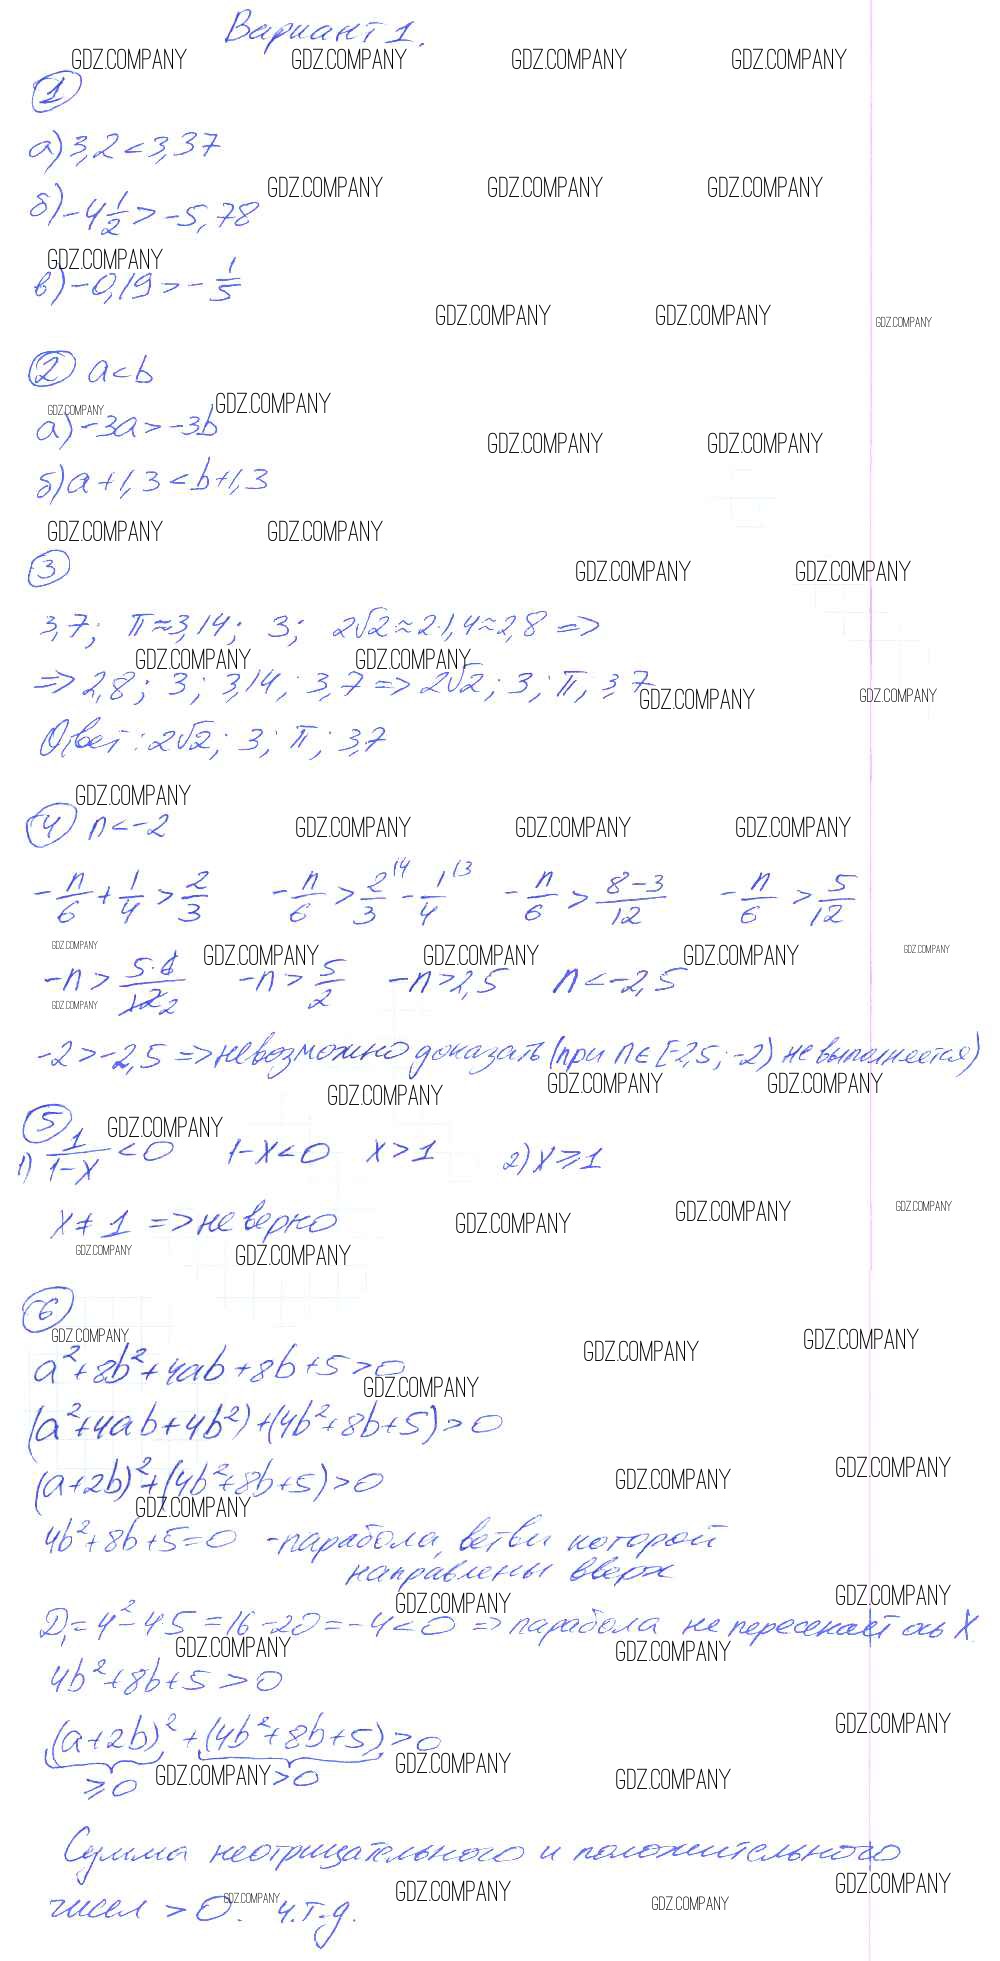 Вариант 1.
GDZ.COMPANY GDZ.COMPANY GDZ.COMPANY GDZ.COMPANY
1
а) 3,2 < 3,37
GDZ.COMPANY GDZ.COMPANY GDZ.COMPANY
б) -4 1/2 > -5,78
GDZ.COMPANY
в) -0,19 > - 1/5
GDZ.COMPANY GDZ.COMPANY GDZ.COMPANY
2 a < b
GDZ.COMPANY GDZ.COMPANY
а) -3a > -3b
GDZ.COMPANY GDZ.COMPANY
б) a + 1,3 < b + 1,3
GDZ.COMPANY GDZ.COMPANY
3
GDZ.COMPANY GDZ.COMPANY
3,7; π ≈ 3,14; 3; 2√2 ≈ 2·1,4 ≈ 2,8 =>
GDZ.COMPANY GDZ.COMPANY
=> 2,8; 3; 3,14; 3,7 => 2√2; 3; π; 3,7
GDZ.COMPANY GDZ.COMPANY
Ответ: 2√2; 3; π; 3,7
GDZ.COMPANY
4 n < -2
GDZ.COMPANY GDZ.COMPANY GDZ.COMPANY
- n/6 + 1/4 > 2/3 - n/6 > 2/3 \4 - 1/4 \3 - n/6 > 8-3/12 - n/6 > 5/12
GDZ.COMPANY GDZ.COMPANY GDZ.COMPANY GDZ.COMPANY GDZ.COMPANY
-n > 5·6/12 2 -n > 5/2 -n > 2,5 n < -2,5
GDZ.COMPANY
-2 > -2,5 => невозможно доказать (при n ∈ [-2,5; -2) не выполняется)
GDZ.COMPANY GDZ.COMPANY GDZ.COMPANY
5 GDZ.COMPANY
1) 1/1-x < 0 1-x < 0 x > 1 2) x ⩾ 1
x ≠ 1 => не верно
GDZ.COMPANY GDZ.COMPANY GDZ.COMPANY
GDZ.COMPANY GDZ.COMPANY
6
GDZ.COMPANY GDZ.COMPANY GDZ.COMPANY
a² + 8b² + 4ab + 8b + 5 > 0
GDZ.COMPANY
(a² + 4ab + 4b²) + (4b² + 8b + 5) > 0
(a + 2b)² + (4b² + 8b + 5) > 0
GDZ.COMPANY GDZ.COMPANY
GDZ.COMPANY
4b² + 8b + 5 = 0 - парабола, ветви которой
направлены вверх
GDZ.COMPANY GDZ.COMPANY
D₁ = 4² - 4·5 = 16 - 20 = -4 < 0 => парабола не пересекает ось X
GDZ.COMPANY GDZ.COMPANY
4b² + 8b + 5 > 0
GDZ.COMPANY
(a + 2b)² + (4b² + 8b + 5) > 0
⩾ 0 > 0
GDZ.COMPANY GDZ.COMPANY GDZ.COMPANY
Сумма неотрицательного и положительного
GDZ.COMPANY GDZ.COMPANY GDZ.COMPANY GDZ.COMPANY
чисел > 0. ч.т.д.